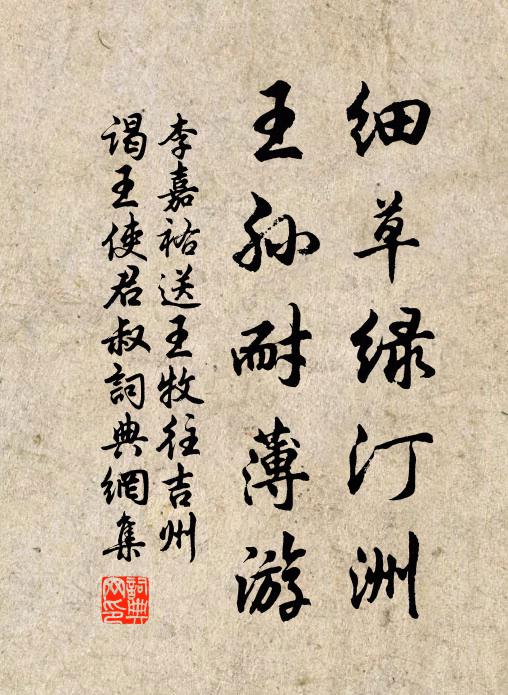 细草绿汀洲
王孙耐薄游
李嘉祐送王牧往吉州
谒王使君叔詞典網集
詞典网印